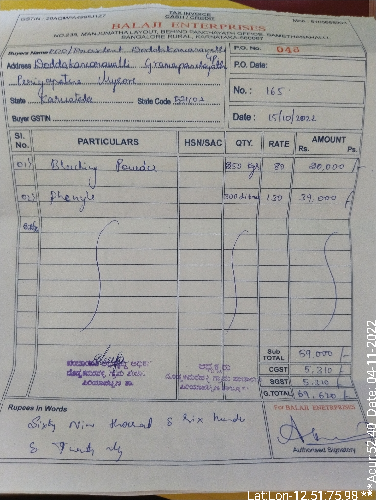 TAX INVOICE
CASH / CREDIT
BALAJI ENTERPRISES
NO.239, MANJUNATHA LAYOUT, BEHIND PANCHAYATH OFFICE,
BANGALORE RURAL, KARNATAKA
Buyers Name PDO/President Doddakamaravalli
Address Doddakamaravalli Gramapanchayath
Periyapatna Mysore
State Karnataka State Code
Buyer GSTIN
P.O. No. 046
P.O. Date:
No.: 165
Date: 15/10/2022
Sl. No. PARTICULARS HSN/SAC QTY. RATE AMOUNT Rs. Ps.
01) Bleaching Powder 250 kgs 80 20,000 /-
02) Phenyle 300 litre 130 39,000 /-
Sub TOTAL 59,000 /-
CGST 5,310 /-
SGST 5,310 /-
G.TOTAL 69,620 /-
Rupees in Words
Sixty Nine thousand & Six Hundred
& Twenty only
For BALAJI ENTERPRISES
Authorised Signatory
Lat:Lon-12.51:75.98
***Acur:52.40 Date, 04-11-2022